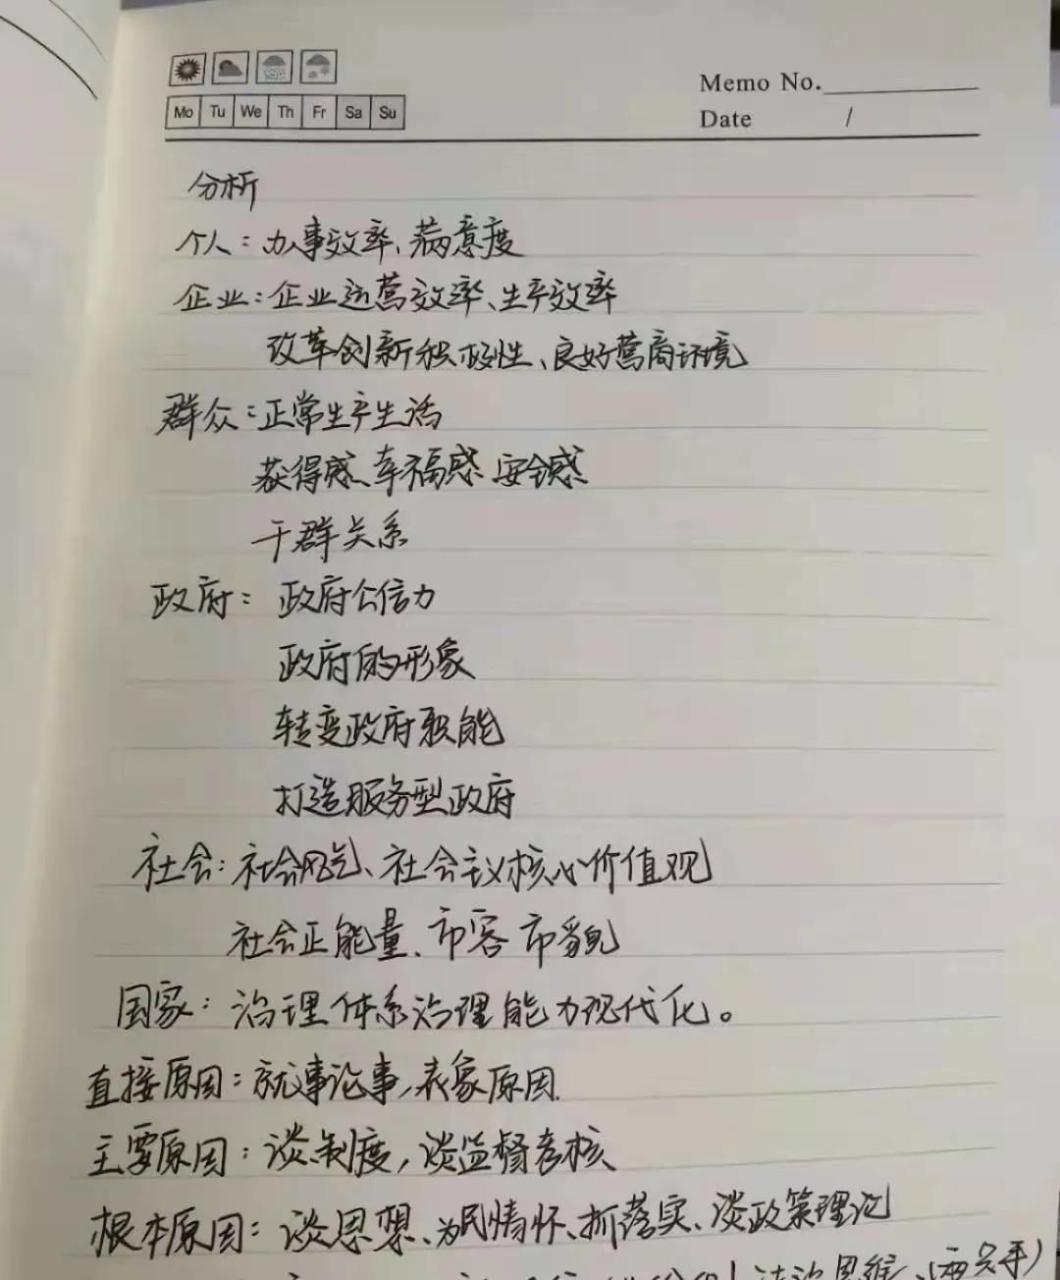 Memo No.
Mo Tu We Th Fr Sa Su
Date /
分析
个人：办事效率、满意度
企业：企业运营效率、生产效率
改革创新积极性、良好营商环境
群众：正常生产生活
获得感、幸福感、安全感
干群关系
政府：政府公信力
政府的形象
转变政府职能
打造服务型政府
社会：社会风气、社会主义核心价值观
社会正能量、市容市貌
国家：治理体系治理能力现代化。
直接原因：就事论事，表象原因.
主要原因：谈制度，谈监督考核
根本原因：谈思想、为民情怀、抓落实、谈政策理论
法治思维、(两只手)